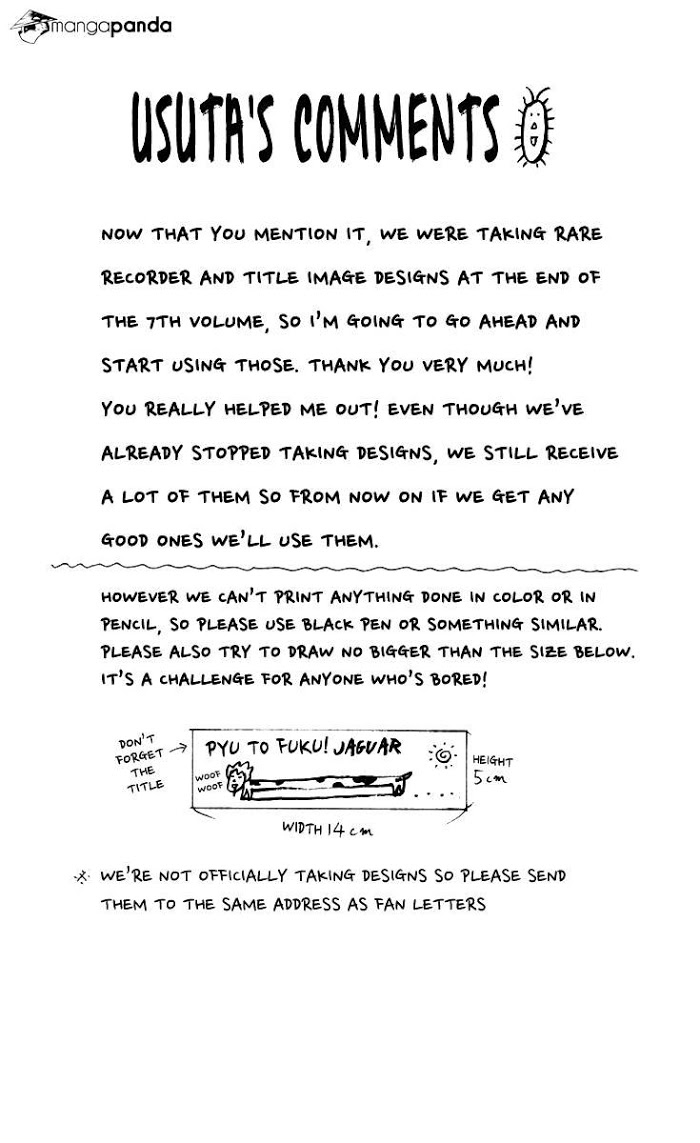 mangapanda
USUTA'S COMMENTS
NOW THAT YOU MENTION IT, WE WERE TAKING RARE
RECORDER AND TITLE IMAGE DESIGNS AT THE END OF
THE 7TH VOLUME, SO I'M GOING TO GO AHEAD AND
START USING THOSE. THANK YOU VERY MUCH!
YOU REALLY HELPED ME OUT! EVEN THOUGH WE'VE
ALREADY STOPPED TAKING DESIGNS, WE STILL RECEIVE
A LOT OF THEM SO FROM NOW ON IF WE GET ANY
GOOD ONES WE'LL USE THEM.
HOWEVER WE CAN'T PRINT ANYTHING DONE IN COLOR OR IN
PENCIL, SO PLEASE USE BLACK PEN OR SOMETHING SIMILAR.
PLEASE ALSO TRY TO DRAW NO BIGGER THAN THE SIZE BELOW.
IT'S A CHALLENGE FOR ANYONE WHO'S BORED!
DON'T
FORGET
THE
TITLE
PYU TO FUKU! JAGUAR
WOOF
WOOF
HEIGHT
5cm
WIDTH 14cm
※ WE'RE NOT OFFICIALLY TAKING DESIGNS SO PLEASE SEND
THEM TO THE SAME ADDRESS AS FAN LETTERS